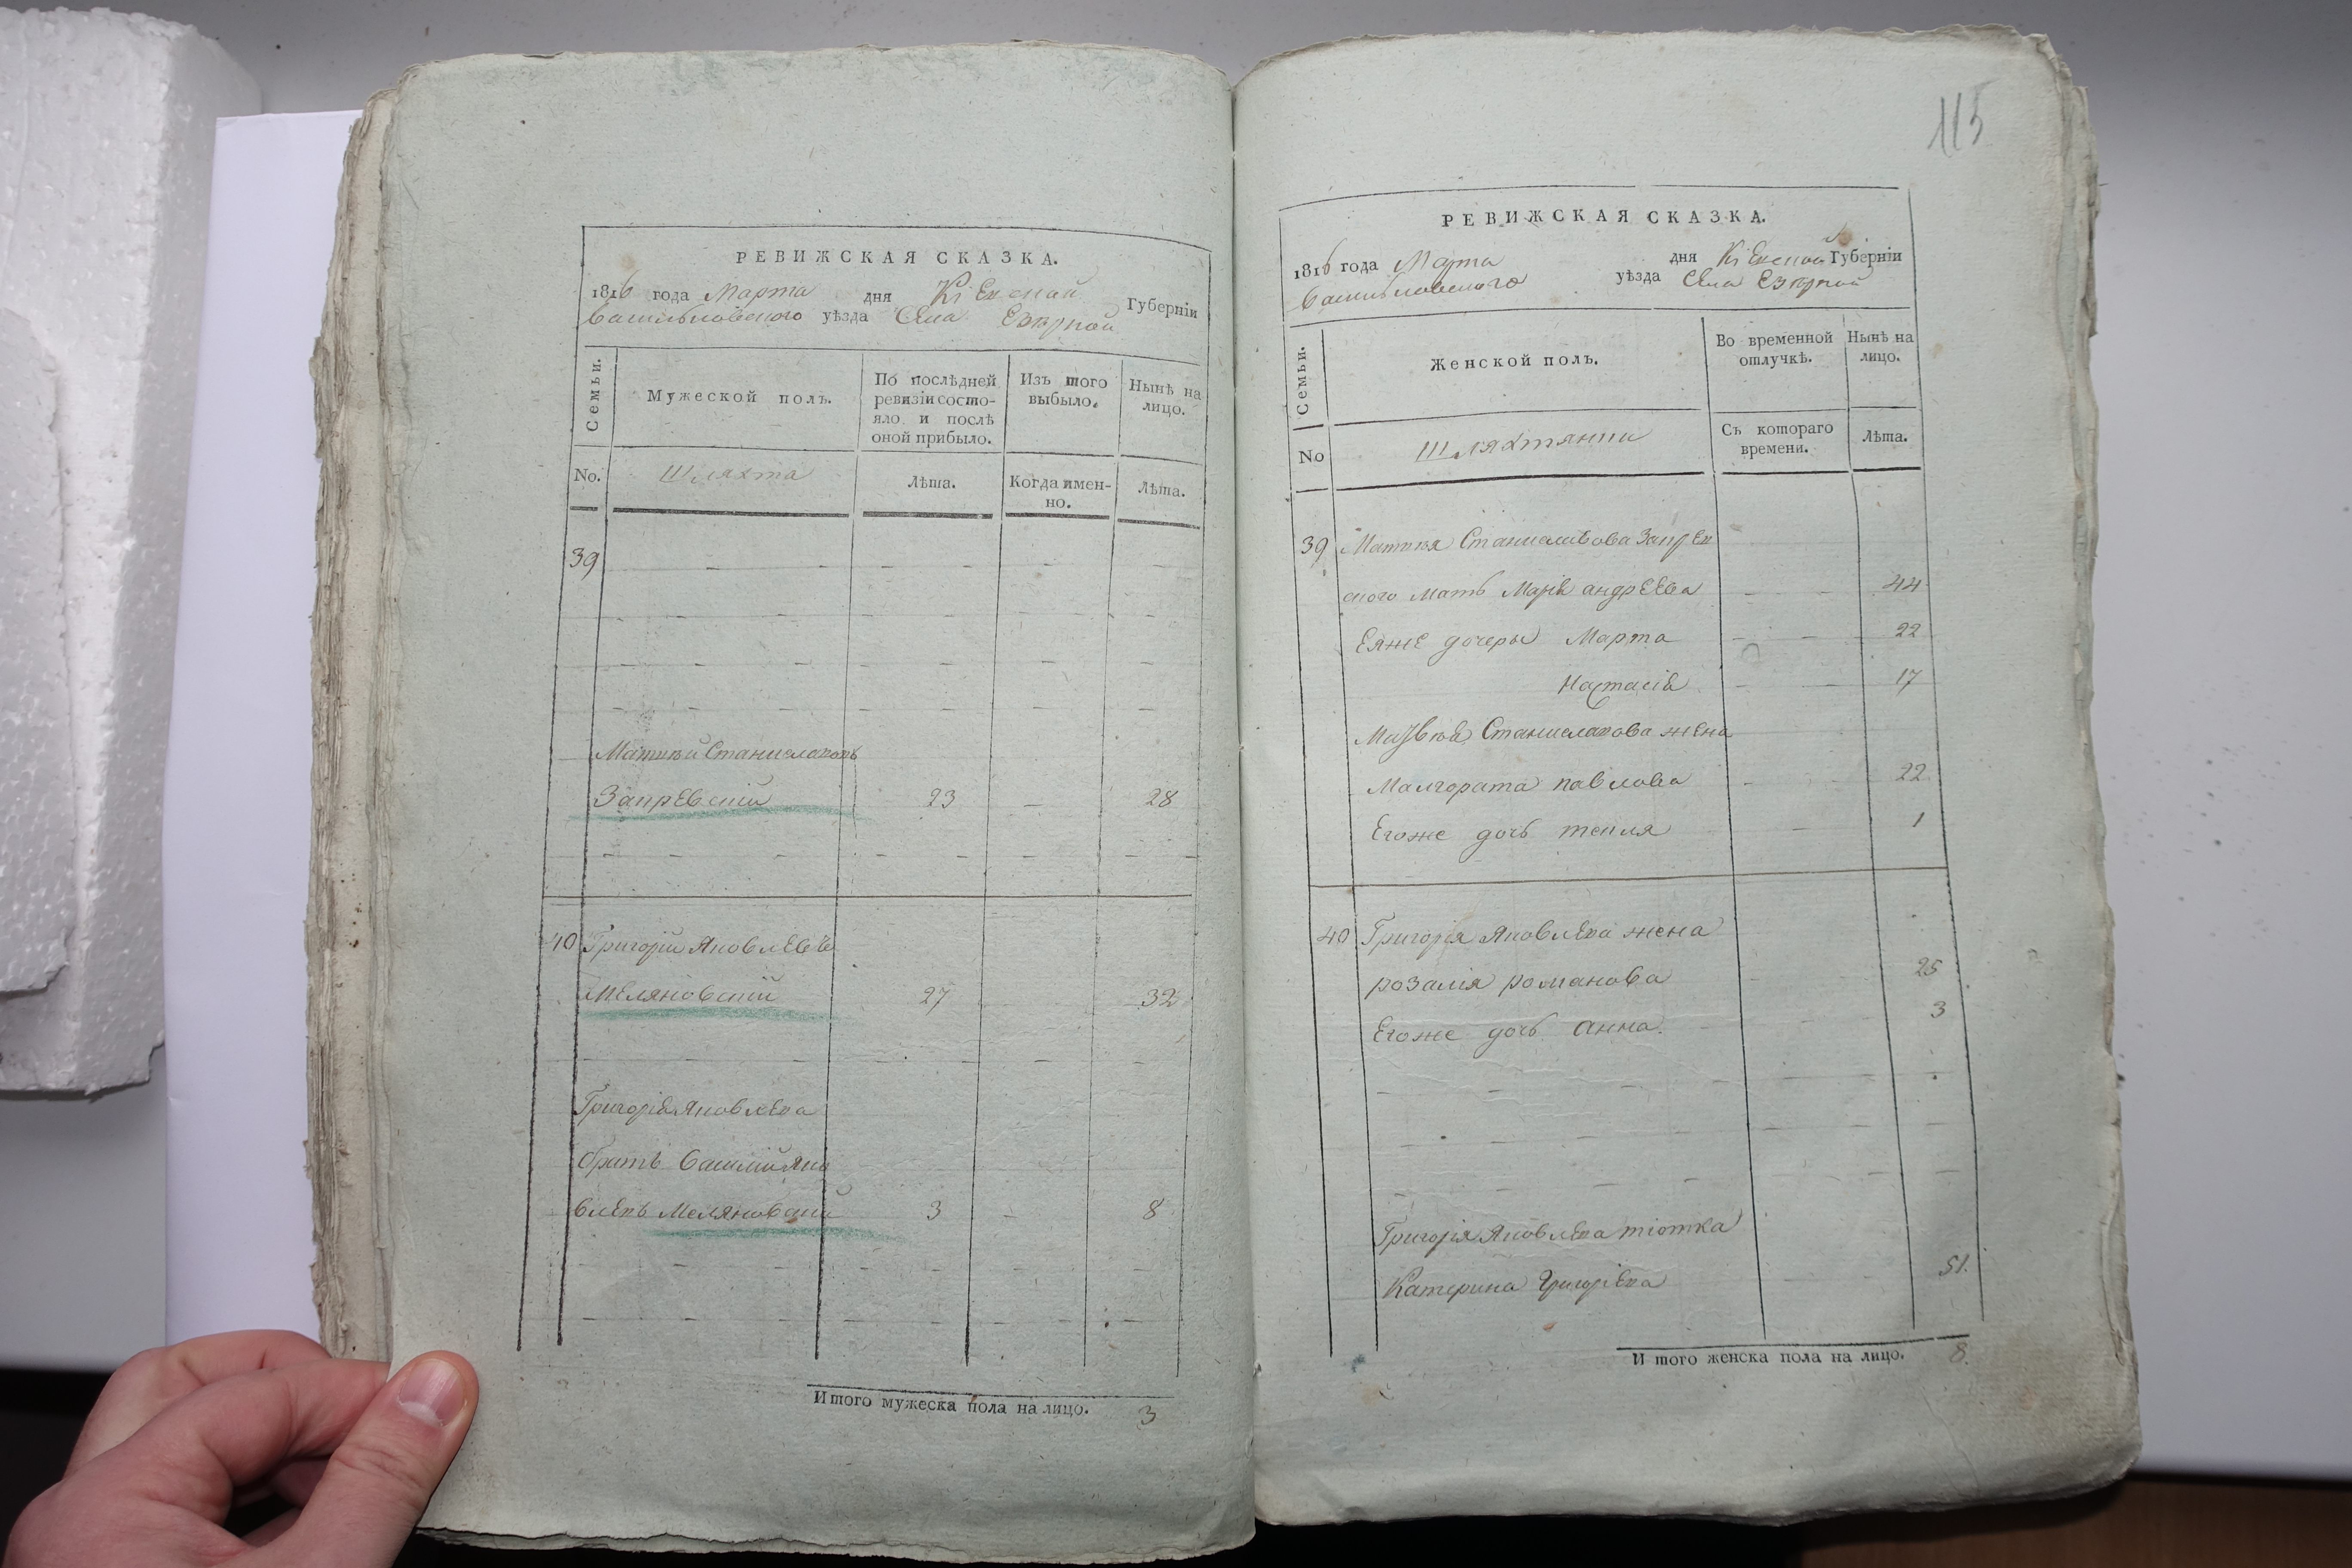 РЕВИЖСКАЯ СКАЗКА.
1816 года Марта дня Кіевской Губерніи
Васильковского уѣзда Села Езѣрной
Семьи.
Мужеской полъ.
По послѣдней ревизіи состо-
яло и послѣ
оной прибыло.
Изъ того выбыло.
Нынѣ на лицо.
No.
Шляхта
Лѣта.
Когда имен-
но.
Лѣта.
39
Матвѣй Станиславовъ
Запревскій 23 — 28
40 Григорій Яковлевъ
Меляновскій 27 32
Григорія Яковлева
братъ Василій Яко
влевъ Меляновскій 3 — 8
Итого мужеска пола на лицо. 3
115
РЕВИЖСКАЯ СКАЗКА.
1816 года Марта дня Кіевской Губерніи
Васильковского уѣзда Села Езѣрной
Семьи.
Женской полъ.
Во временной
отлучкѣ.
Нынѣ на
лицо.
No
Шляхтянки
Съ котораго
времени.
Лѣта.
39 Матвѣя Станиславова Запрев
ского мать Марія андреева 44
Еяже дочеры Марта 22
Настасія 17
Матвѣя Станиславова жена
Малгората павлова 22
Егоже дочь текля 1
40 Григорія Яковлева жена
розалія романова 25
Егоже дочь анна. 3
Григорія Яковлева тіотка
Катерина Григоріева 51.
Итого женска пола на лицо. 8.